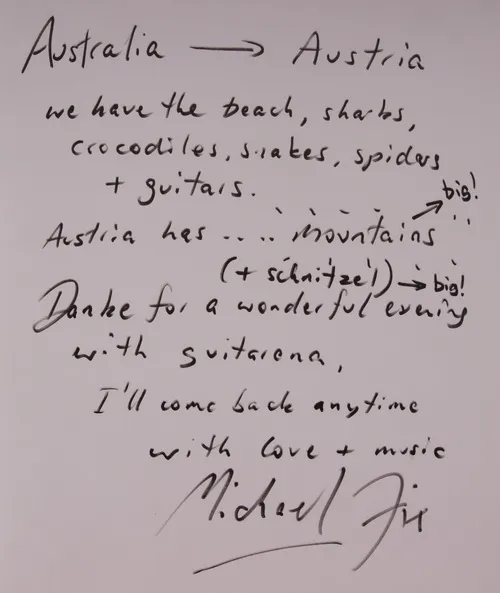 Australia → Austria
we have the beach, sharks,
crocodiles, snakes, spiders
+ guitars.
big!
Austria has .... mountains
(+ schnitzel) → big!
Danke for a wonderful evening
with guitarena,
I'll come back anytime
with love + music
Michael Fix